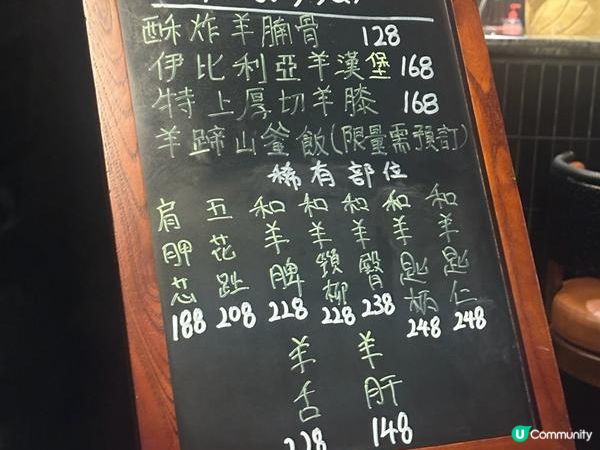 酥炸羊腩骨 128
伊比利亞羊漢堡 168
特上厚切羊膝 168
羊蹄山釜飯(限量需預訂)
稀有部位
肩胛芯 188
五花趾 208
和羊脾 228
和羊鎖柳 228
和羊臀 238
和羊匙柄 248
和羊匙仁 248
羊舌 228
羊肝 148
U Community